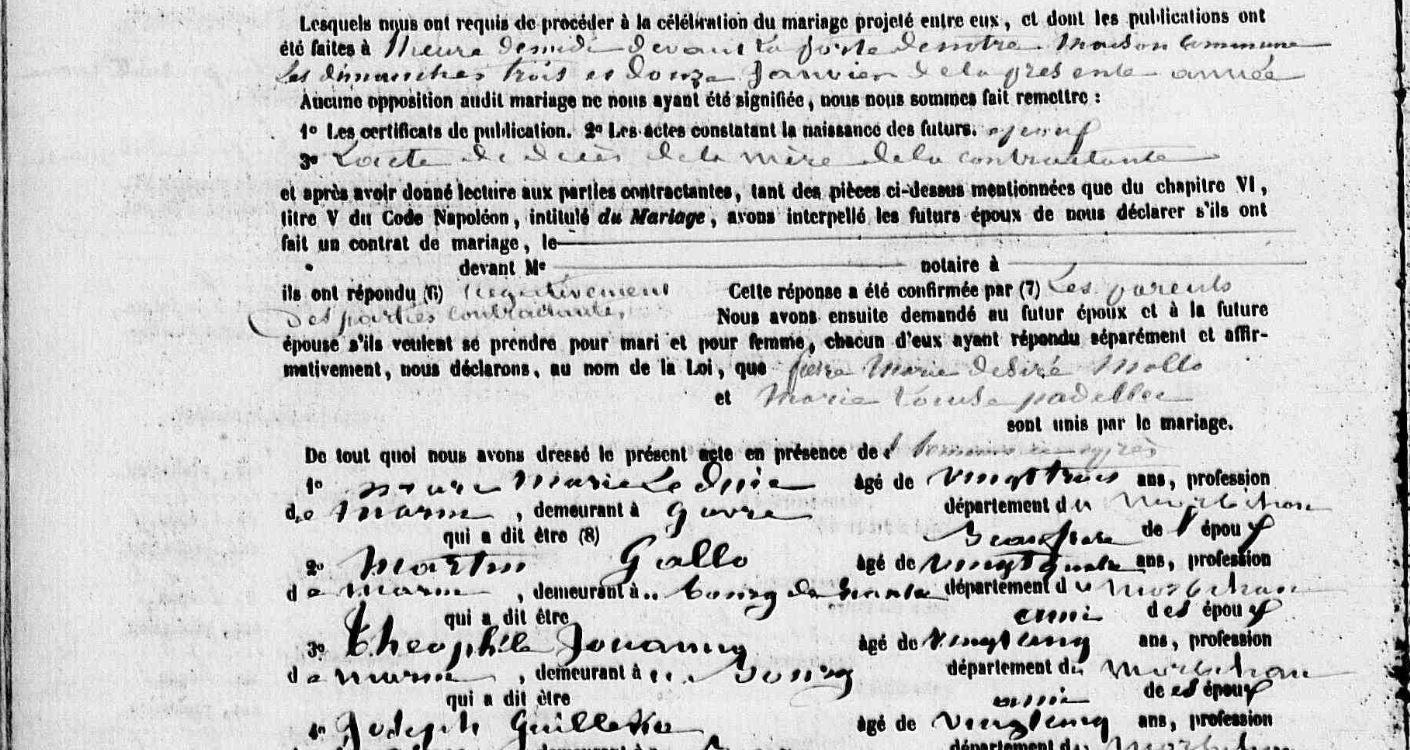 Lesquels nous ont requis de procéder à la célébration du mariage projeté entre eux, et dont les publications ont
été faites à l'heure de midi devant la porte de notre Maison Commune
les dimanches trois et douze Janvier de la présente année
Aucune opposition audit mariage ne nous ayant été signifiée, nous nous sommes fait remettre :
1º Les certificats de publication. 2º Les actes constatant la naissance des futurs.
3º L'acte de décès de la mère de la contractante
et après avoir donné lecture aux parties contractantes, tant des pièces ci-dessus mentionnées que du chapitre VI,
titre V du Code Napoléon, intitulé du Mariage, avons interpellé les futurs époux de nous déclarer s'ils ont
fait un contrat de mariage, le
devant Me notaire à
ils ont répondu (6) négativement Cette réponse a été confirmée par (7) Les parents
des parties contractante, Nous avons ensuite demandé au futur époux et à la future
épouse s'ils veulent se prendre pour mari et pour femme, chacun d'eux ayant répondu séparément et affir-
mativement, nous déclarons, au nom de la Loi, que pierre Marie desiré Mollo
et Marie Louise padellec
sont unis par le mariage.
De tout quoi nous avons dressé le présent acte en présence de
1º Marie Le âgé de vingt trois ans, profession
de marin, demeurant à gavre département du Morbihan
qui a dit être (8) Beaufrere de l'époux
2º Martin Gallo âgé de vingt quatre ans, profession
de marin, demeurant à bourg de département du Morbihan
qui a dit être ami des époux
3º Theophile Jouanny âgé de vingt cinq ans, profession
de marin, demeurant à Bourg département du Morbihan
qui a dit être amie de es époux
4º Joseph Guillette âgé de vingt cinq ans, profession
demeurant à département du Morbihan